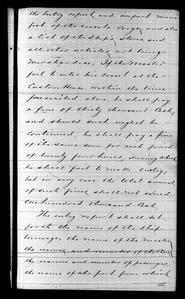 the entry report and import mani-
fest of the vessels Cargo, and also
a list of the ships Stores and
all other articles not being
Merchandise. If the Master
fail to enter his vessel at the
Custom House within the time
prescribed above, he shall pay
a fine of thirty thousand Cash,
and should such neglect be
continued, he shall pay a fine
of the same sum for each period
of twenty four hours, during which
he shall fail to make entry;
but in any case the total amount
of such fines shall not exceed
One hundred thousand Cash.
The entry report shall set
forth the name of the ship
tonnage, the name of the Master
the names and number of
the names and number of passengers
the name of the port from which
the